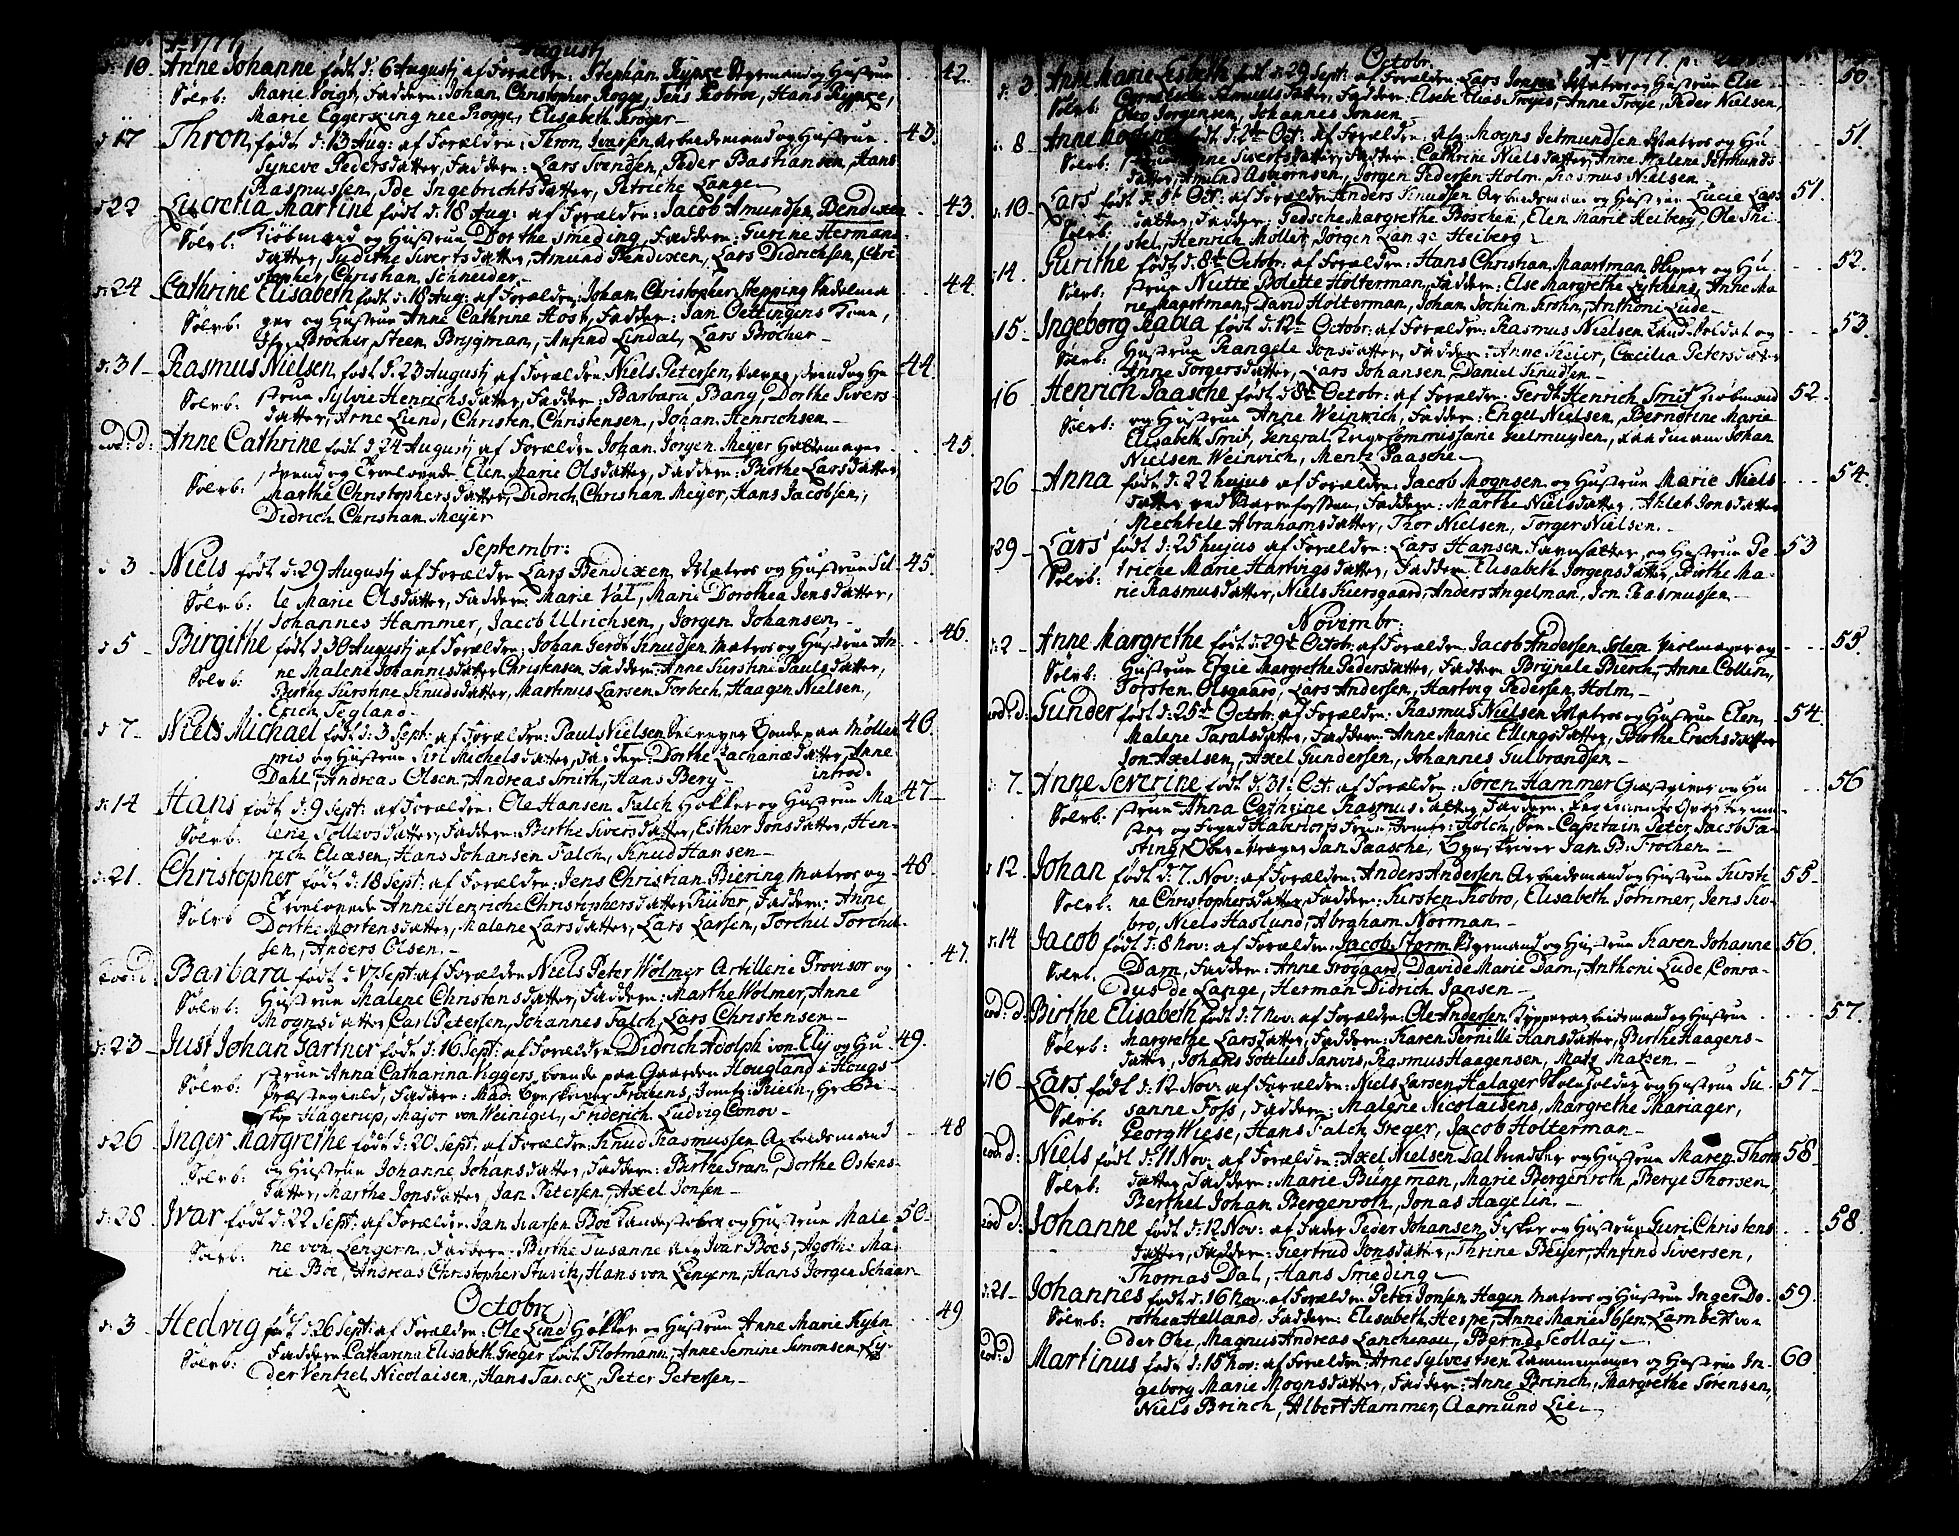 Ao 1777
Augustj
d: 10. Anne Johanne født d: 6 Augustj af Forældre: Stephan Rypke Styrmand og Hustrue 42.
Sølvb: Marie Voigt, Faddere: Johan Christopher Rogge, Jens Fiobroe, Hans Rypke,
Marie Eggerking nee Rogge, Elisabeth Krøger
d 17 Thron, født d: 13 Aug: af Forældre: Thron Ivarsen Arbeidsmand og Hustrue 43.
Syneve Pedersdatter, Faddere: Lars Svendsen, Peder Bastiansen, Hans
Rasmussen, Ide Ingebrichtsdatter, Petriche Lange
d 22 Lucretia Martine født d: 18 Aug: af Forældre: Jacob Amundsen Bendixen 43.
Sølvb: Kiøbmand og Hustrue Dorthe Smeding, Faddere: Gurine Hermans
datter, Judithe Sivertsdatter, Amund Bendixen, Lars Didrichsen, Chri
stopher Christian Schneider
d: 24 Cathrine Elisabeth født d: 18 Aug: af Forældre: Johan Christopher Stepping Sadelma 44.
Sølvb: ger og Hustrue Anne Cathrine Host, Faddere: Jan Oettingens Kone,
Brøcher, Steen Brygman, Anfind Lindal, Lars Brøcher
d: 31 Rasmus Nielsen, født d: 23 Augustj af Forældre: Niels Petersen, svend og Hu 44.
Sølvb: strue Sylvie Henrichsdatter, Faddere: Barbara Bang, Dorthe Sivers
datter, Arne Lund, Christen Christensen, Johan Henrichsen
eod: d: Anne Cathrine født d: 24 Augustj af Forældre: Johan Jørgen Meyer Hattemager 45.
Sølvb: svend og Trolovede Elen Marie Olsdatter, Faddere: Birthe Larsdatter,
Marthe Christophersdatter, Didrich Christian Meyer, Hans Jacobsen,
Didrich Christian Meyer
Septembr:
d 3 Niels født d: 29 Augustj af Forældre: Lars Bendixen Matros og Hustrue Sil 45.
Sølvb: le Marie Olsdatter, Faddere: Marie Val, Marie Dorothea Jensdatter,
Johannes Hammer, Jacob Ulrichsen, Jørgen Johansen
d 5 Birgithe født d: 30 Augustj af Forældre: Johan Gerdt Knudsen Matros og Hustrue An 46.
Sølvb: ne Malene Johannisdatter Christensen Faddere: Anne Kirstine Paulsdatter,
Birthe Kirstine Knudsdatter, Martinus Larsen Torbech, Haagen Nielsen,
Erich Tegland
d 7 Niels Michael født d: 3 Sept: af Forældre: Paul Nielsen boende paa Møllen 46.
pris og Hustrue Siri Michelsdatter, Faddere: Dorthe Zachariædatter, Anne
Dahl, Andreas Olsen, Andreas Smith, Hans Berg introd:
d: 14 Hans født d: 9 Sept: af Forældre: Ole Hansen Falch Høkker og Hustrue Ma 47
Sølvb: lene Tollevsdatter, Faddere: Berthe Siversdatter, Esther Jonsdatter, Hen
rich Eliæsen, Hans Johansen Falch, Knud Hansen
d: 21. Christopher født d: 18 Sept: af Forældre: Jens Christian Biering Matros og 48
Sølvb Trolovede Anne Henriche Christophersdatter Kuber, Faddere: Anne
Dorthe Mortensdatter, Malene Larsdatter, Lars Larsen, Torchil Torchil
sen, Anders Olsen.
eod: d: Barbara født d: 17 Sept: af Forældre: Niels Peter Wolmer Artillerie Provisor og 47.
Sølvb: Hustrue Malene Christensdatter, Faddere: Marthe Wolmer, Anne
Mognsdatter, Carl Petersen, Johannes Falch, Lars Christensen
d: 23 Just Johan Gartner født d: 16 Sept: af Forældre: Didrich Adolph von Elij og Hu 49.
Sølvb: strue Anna Catharina Viggers, boende paa Gaarden Hougland i Hougs
Præstegield, Faddere: Mad. Byeskriver Frochens, Jomfr: Bueth, Hr: Bi
skop Hagerup, Major von Weinigel, Friderich Ludvig Conov
d 26 Inger Margrethe født d: 20 Sept: af Forældre: Knud Rasmussen Arbeidsmand 48
Sølvb: og Hustrue Johanne Johansdatter, Faddere: Birthe Gran, Dorthe Ostens
datter, Marthe Jonsdatter, Jan Petersen, Axel Jonsen
d: 28 Ivar født d: 22 Sept: af Forældre: Jan Ivarsen Boe Kandestøber og Hustrue Male 50
Sølvb: ne von Lengern, Faddere: Birthe Susanne Ivar Boes, Agothe Ma
rie Boe, Andreas Christopher Sturitz, Hans von Lengern, Hans Jørgen Schaar
Octobr:
d: 3 Hedvig født d: 26 Sept: af Forældre: Ole Lind Høkker og Hustrue Anne Marie Kyhn 49
Sølvb: Faddere: Catharina Elisabeth Greger født Flotmann, Anne Semine Simonsen, Ly
der Ventzel Nicolaisen, Hans Tasck, Peter Petersen
Octobr: Ao 1777.
d: 3 Anne Marie Lisbeth født d: 29 Sept: af Forældre: Lars Jonsen Matros og Hustrue Else 50
Sølvb: Cornelsche Samuelsdatter, Faddere: Elsebe Elias Troyes, Anne Troye, Peder Nielsen,
Ole Jørgensen, Johannes Jonsen
d: 8 Anne født d: 2de Oct: af Forældre: afg: Mogns Jetmundsen Matros og Hu 51
Sølvb: strue Anne Sivertsdatter, Faddere: Cathrine Nielsdatter, Anne Malene Jetmunds
datter, Amund Asbiørnsen, Jørgen Pedersen Holm, Rasmus Nielsen
d: 10 Lars født d: 3de Oct: af Forældre: Anders Knudsen Arbeidsmand og Hustrue Lucie Lars 51.
Sølvb: datter, Faddere: Gedsche Margrethe Boschen, Elen Marie Heiberg, Ole Thi
stel, Henrich Møller, Jørgen Lange Heiberg
d: 14 Gurithe født d: 8de Octobr: af Forældre: Hans Christian Maartman Skipper og Hu 52.
Sølvb: strue Nutte Bolette Holterman, Faddere: Else Margrethe Lythkens, Anne Ma
rie Maartman, David Holterman, Johan Jochim Krohn, Anthoni Lude
15 Ingeborg Rabia født d: 12te Octobr: af Forældre: Rasmus Nielsen Land-Soldat og 53.
Sølvb: Hustrue Rangele Jonsdatter, Faddere: Anne Maier, Cæcilia Petersdatter
Anne Torgersdatter, Lars Johansen, Daniel Knudsen
16 Henrich Paasche født d: 8de Octobr: af Forældre: Gerdt Henrich Smit Kiøbmand 52.
Sølvb: og Hustrue Anne Weinwich, Faddere: Engel Nielsen, Bernotine Marie
Elisabeth Smit, General Krigs Commissarie Geelmuyden, Raadmann Johan
Nielsen Weinwich, Mentz Paasche
d 26 Anna født d: 22 hujus af Forældre: Jacob Mognsen og Hustrue Marie Niels 54.
datter ved Barenfossen, Faddere: Marthe Nielsdatter, Ahlet Jonsdatter
Mechtele Abrahamsdatter, Thor Nielsen, Torger Nielsen.
d 29 Lars født d: 25 hujus af Forældre: Lars Hansen og Hustrue Pe 53
Sølvb: triche Marie Hartvigsdatter, Faddere: Elisabeth Jørgensdatter, Birthe Ma
rie Rasmusdatter, Niels Kiersgaard, Anders Angelman, Jon Rasmussen
Novembr:
d: 2 Anne Margrethe født d: 29de Octobr: af Forældre: Jacob Andersen Holm og 55.
Sølvb: Hustrue Efgie Margrethe Pedersdatter, Faddere: Brynele Bierch, Anne Collin,
Torsten Olsgaard, Lars Andersen, Hartvig Pedersen Holm
eod: d: Gunder født d: 25de Octobr: af Forældre: Rasmus Nielsen Matros og Hustrue Elen, 54.
Malene Taralsdatter, Faddere: Anne Marie Ellingsdatter, Birthe Erichsdatter
Jon Axelsen, Axel Gundersen, Johannes Gulbrandsen
d: 7. Anne Severine født d: 31 Oct: af Forældre: Søren Hammer Giæstgiver og Hu 56
Sølvb: strue Anna Cathrine Rasmusdatter, Faddere: Regiments Qvartermes
ster og Foged Habendorfs Frue, Jomfr: Holch, Hr: Capitain Peter Jacob Fa
sting, Over-Vrager Jan Paasche, Byeskriver Jan B: Frochen
d 12 Johan født d: 7. Nov: af Forældre: Anders Andersen Arbeidsmand og Hustrue Kirsti 55
Sølvb: ne Christophersdatter, Faddere: Kirsten Fiobro, Elisabeth Tommer, Jens Fio
bro, Niels Haslund, Abraham Norman
d: 14 Jacob født d: 8 Nov: af Forældre: Jacob Storm Styrmand og Hustrue Karen Johanne 56.
Sølvb. Dam, Faddere: Anne Grøgaard, Davide Marie Dam, Anthoni Lude, Conra
dus de Lange, Herman Didrich Jansen
eod: d: Birthe Elisabeth født d: 7 Nov: af Forældre: Ole Andersen Kypperarbeidsmand og Hustrue 57.
Sølvb: Margrethe Larsdatter, Faddere: Karen Pernille Hansdatter, Birthe Haagens
datter, Johans Gottlieb Janvis, Rasmus Haagensen, Matz Matsen
d 16 Lars født d: 12 Nov: af Forældre: Niels Larsen Halager Skoleholder og Hustrue Su 57
Sølvb: sanne Foss, Faddere: Malene Nicolaisens, Margrethe Mariager,
Georg Wiese, Hans Falch Greger, Jacob Holterman
eod: d: Niels født d: 11 Nov: af Forældre: Axel Nielsen Dal Snedker og Hustrue Maren Thom 58
Sølvb: datter, Faddere: Marie Büneman, Marie Bergenroth, Berge Thorsen,
Berthel Johan Bergenroth, Jonas Hagelin
eod: d: Johanne født d: 12 Nov: af Fader Peder Johansen Fisker og Hustrue Guri Christens 58.
datter, Faddere: Giertrud Jonsdatter, Thrine Beyer, Anfind Siversen,
Thomas Dal, Hans Smeding
d: 21 Johannes født d: 16 Nov: af Forældre: Peter Jonsen Hagen Matros og Hustrue Inger Do 59.
Sølvb: rothea Helland, Faddere: Elisabeth Hespe, Anne Marie Ibsen, Lambert von
der Ohe, Magnus Andreas Lanchenau, Bernd Scollay
eod: d Martinus født d: 15 Nov: af Forældre: Arne Sylvestsen og Hustrue In 60
geborg Marie Mognsdatter, Faddere: Anne Brinch, Margrethe Sørensen,
Niels Brinch, Albert Hammer, Aamund Lie